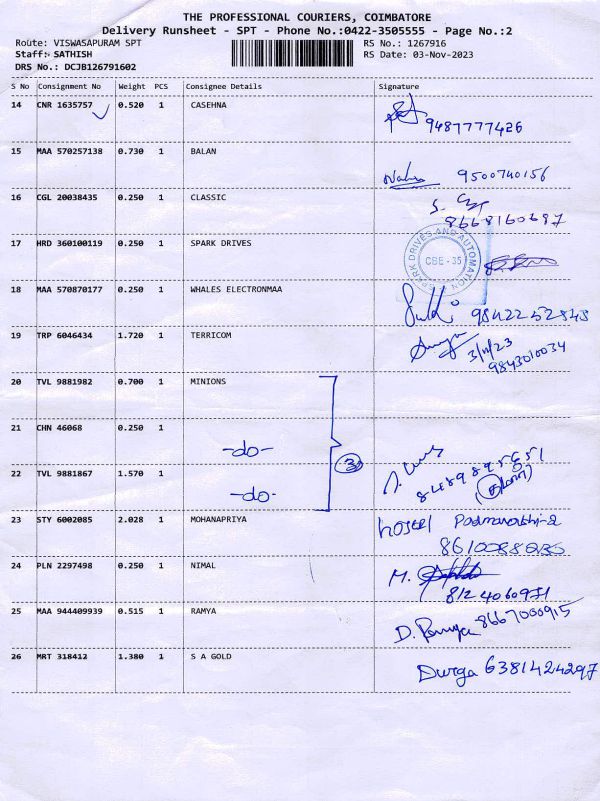 THE PROFESSIONAL COURIERS, COIMBATORE
Delivery Runsheet - SPT - Phone No.:0422-3505555 - Page No.:2
Route: VISWASAPURAM SPT
RS No.: 1267916
Staff: SATHISH
RS Date: 03-Nov-2023
DRS No.: DCJB126791602
S No Consignment No Weight PCS Consignee Details Signature
14 CNR 1635757 0.520 1 CASEHNA
9487777426
15 MAA 570257138 0.730 1 BALAN
9500740156
16 CGL 20038435 0.250 1 CLASSIC
8668160697
17 HRD 360100119 0.250 1 SPARK DRIVES
SPARK DRIVES AND AUTOMATION
CBE - 35
18 MAA 570870177 0.250 1 WHALES ELECTRONMAA
9842252843
19 TRP 6046434 1.720 1 TERRICOM
3/11/23
9843010034
20 TVL 9881982 0.700 1 MINIONS
21 CHN 46068 0.250 1
-do-
3
8489895651
22 TVL 9881867 1.570 1
-do-
23 STY 6002085 2.028 1 MOHANAPRIYA
hostel
24 PLN 2297498 0.250 1 NIMAL
M.
8124060971
25 MAA 944409939 0.515 1 RAMYA
D. Ramya 8667000915
26 MRT 318412 1.380 1 S A GOLD
Durga 6381424297